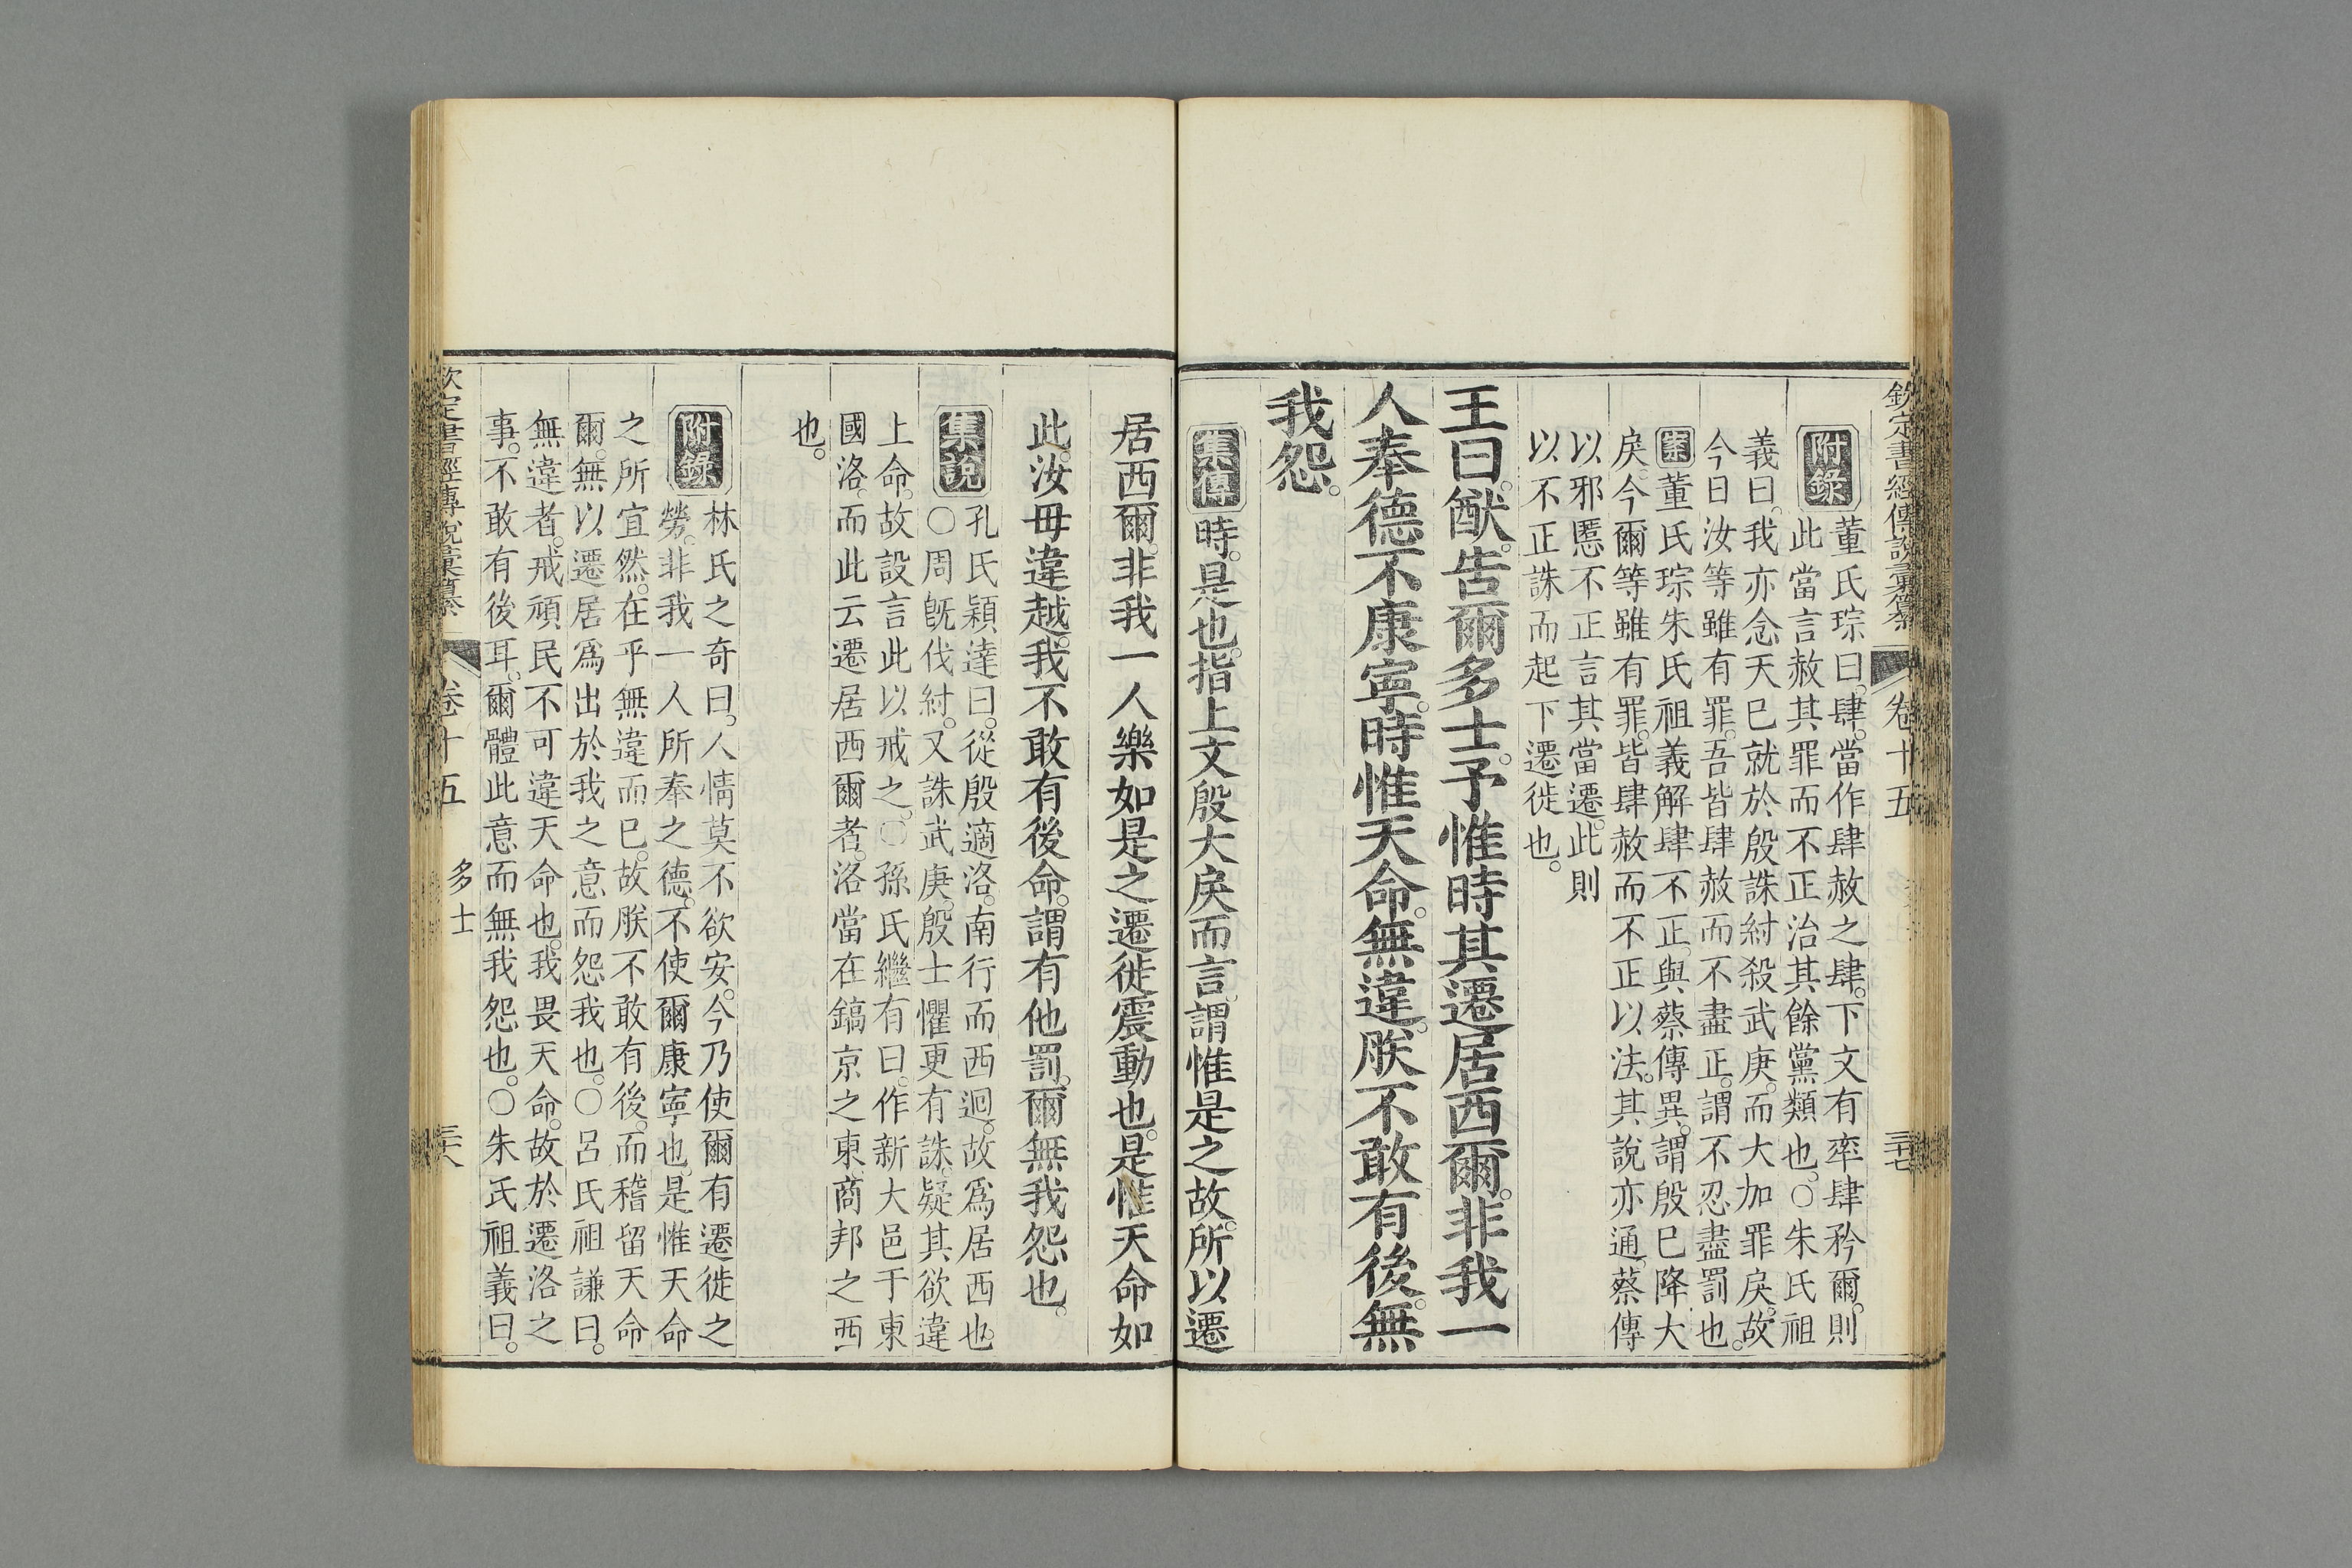 欽定書經傳說彙纂 卷十五 三十七
附錄 董氏琮曰。肆。當作肆赦之肆。下文有率肆矜爾。則
此當言赦其罪而不正治其餘黨類也。○朱氏祖
義曰。我亦念天已就於殷誅紂殺武庚。而大加罪戾。故
今日汝等雖有罪。吾皆肆赦而不盡正。謂不忍盡罰也。
案 董氏琮朱氏祖義解肆不正。與蔡傳異。謂殷已降大
戾。今爾等雖有罪。皆肆赦而不正以法。其說亦通。蔡傳
以邪慝不正言其當遷。此則
以不正誅而起下遷徙也。
王曰。猷。告爾多士。予惟時其遷居西爾。非我一
人奉德不康寧。時惟天命。無違。朕不敢有後。無
我怨。
集傳 時。是也。指上文殷大戾而言。謂惟是之故。所以遷
居西爾。非我一人樂如是之遷徙震動也。是惟天命如
此。汝毋違越。我不敢有後命。謂有他罰。爾無我怨也。
集說 孔氏穎達曰。從殷適洛。南行而西迴。故爲居西也。
○周旣伐紂。又誅武庚。殷士懼更有誅。疑其欲違
上命。故設言此以戒之。○孫氏繼有曰。作新大邑于東
國洛。而此云遷居西爾者。洛當在鎬京之東。商邦之西
也。
附錄 林氏之奇曰。人情莫不欲安。今乃使爾有遷徙之
勞。非我一人所奉之德。不使爾康寧也。是惟天命
之所宜然。在乎無違而已。故朕不敢有後。而稽留天命
爾。無以遷居爲出於我之意而怨我也。○呂氏祖謙曰。
無違者。戒頑民不可違天命也。我畏天命。故於遷洛之
事。不敢有後耳。爾體此意而無我怨也。○朱氏祖義曰。
欽定書經傳說彙纂 卷十五 多士 三十八